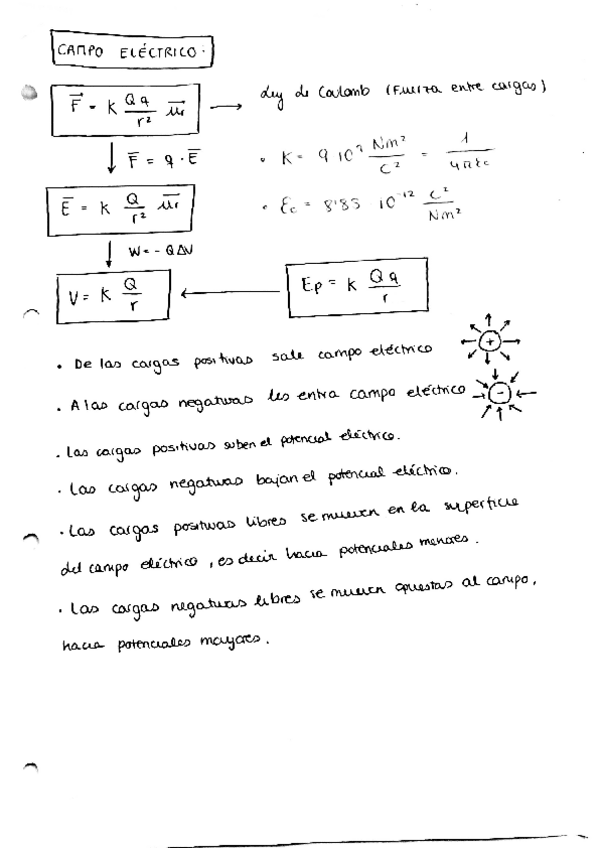 CAMPO ELÉCTRICO.
F = K Qq/r² ur → Ley de Coulomb (Fuerza entre cargas)
↓ F = q · E
• K = 9 10⁹ Nm²/C² = 1/4πεo
E = K Q/r² ur
• εo = 8'85 10⁻¹² C²/Nm²
↓ W = - QΔV
V = K Q/r ← Ep = K Qq/r
• De las cargas positivas sale campo eléctrico
+
• A las cargas negativas les entra campo eléctrico
-
• Las cargas positivas suben el potencial eléctrico.
• Las cargas negativas bajan el potencial eléctrico.
• Las cargas positivas libres se mueven en la superficie
del campo eléctrico, es decir hacia potenciales menores.
• Las cargas negativas libres se mueven opuestas al campo,
hacia potenciales mayores.